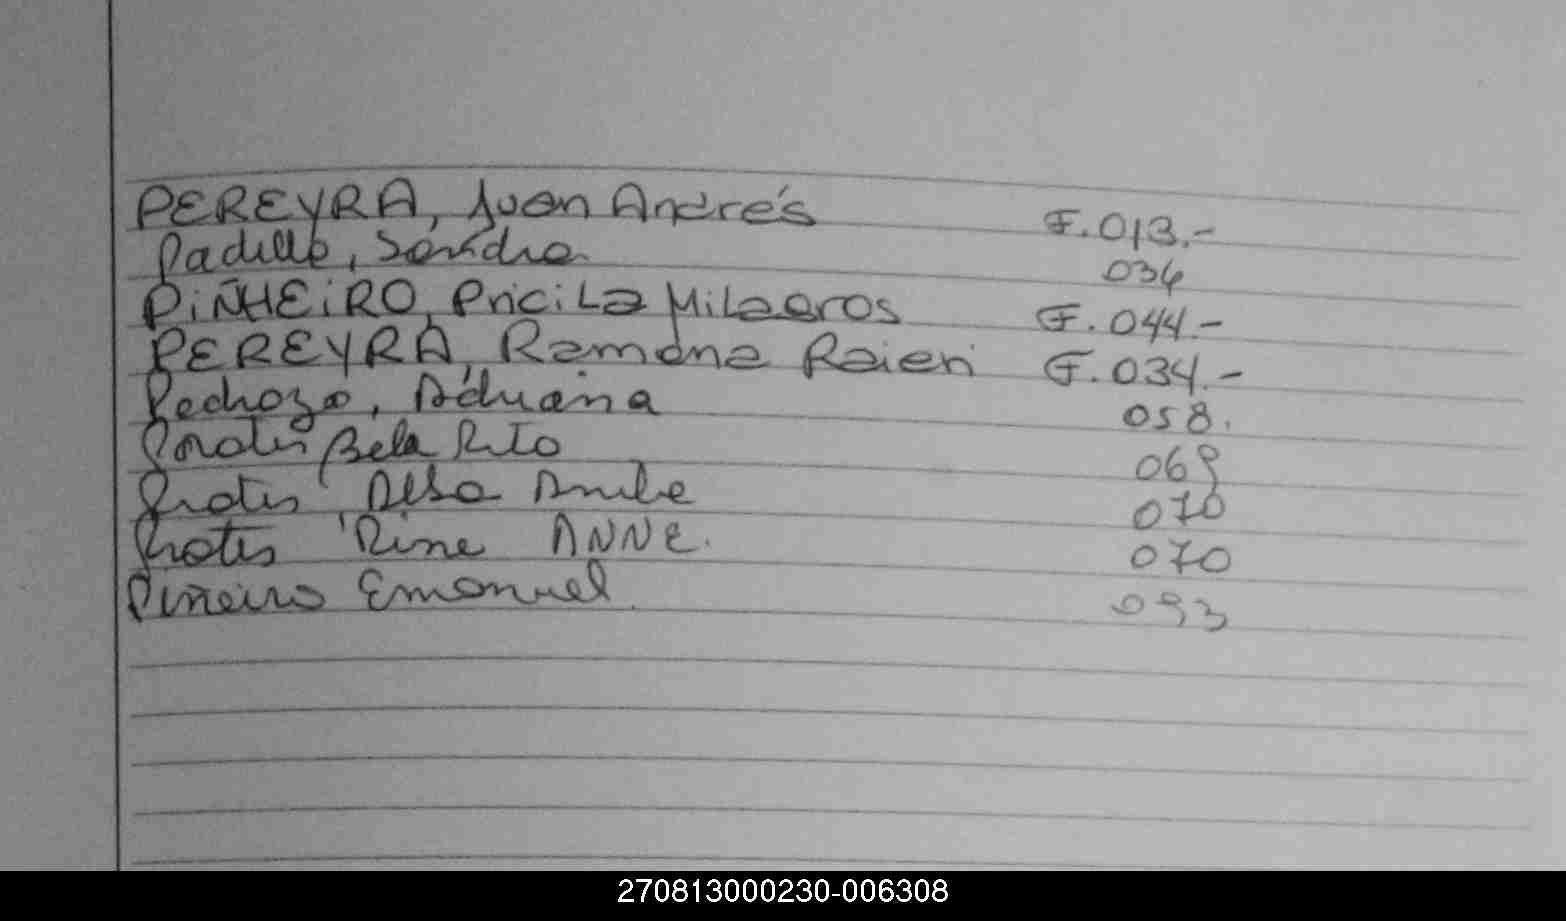 PEREYRA, Juan Andrés F.013.-
Padilla, Sandra 034
PiÑHEiRO, PriciLa MiLagros F.044.-
PEREYRA, Ramona F.034.-
Pedrozo, Adriana 058.
Bela Rito 069
Alba 070
ANNE. 070
Piñeiro Emanuel 093
270813000230-006308